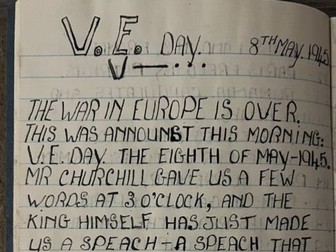 V.E. DAY. 8TH MAY. 1945
V—...
THE WAR IN EUROPE IS OVER.
THIS WAS ANNOUNST THIS MORNING:
V.E. DAY. THE EIGHTH OF MAY-1945.
MR CHURCHILL GAVE US A FEW
WORDS AT 3 O'CLOCK, AND THE
KING HIMSELF HAS JUST MADE
US A SPEACH - A SPEACH THAT